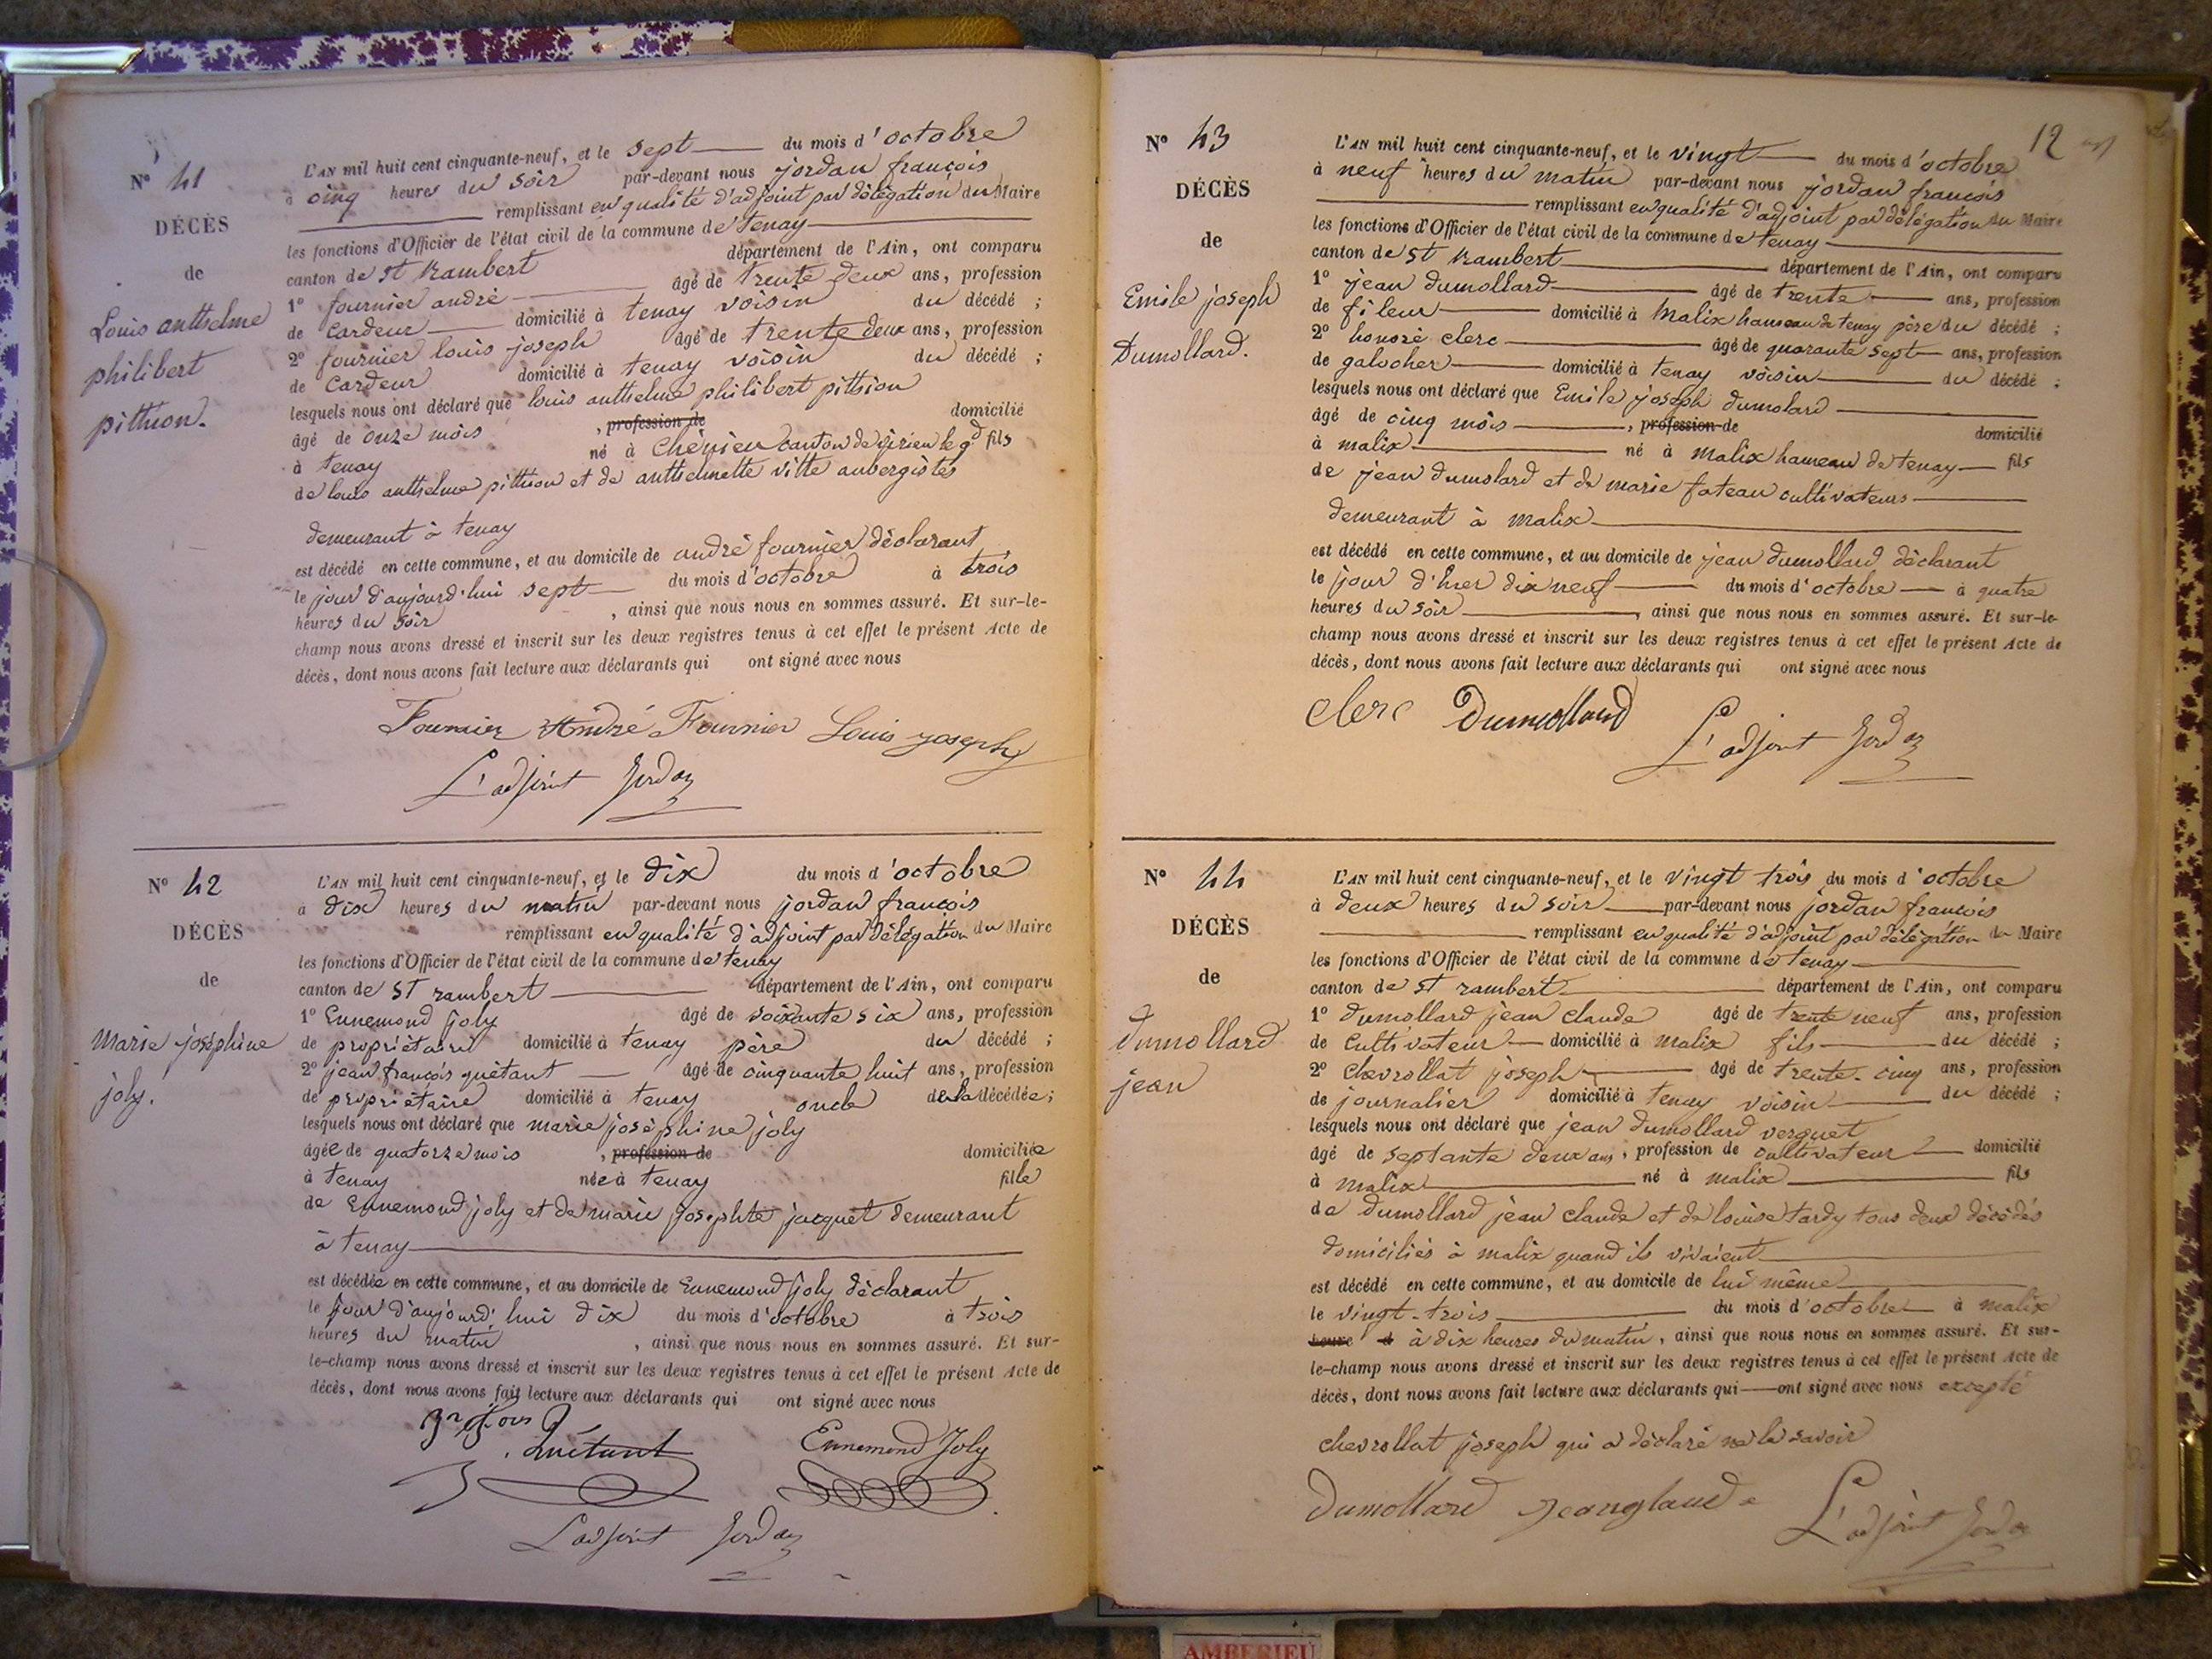 N° 41
DÉCÈS
de
Louis anthelme
philibert
pithion.
L'AN mil huit cent cinquante-neuf, et le sept du mois d'octobre
à cinq heures du soir par-devant nous jordan francois
remplissant en qualité d'adjoint par délégation du Maire
les fonctions d'Officier de l'état civil de la commune de tenay
canton de st Rambert département de l'Ain, ont comparu
1° fournier andré âgé de trente deux ans, profession
de cardeur domicilié à tenay voisin du décédé ;
2° fournier louis joseph âgé de trente deux ans, profession
de Cardeur domicilié à tenay voisin du décédé ;
lesquels nous ont déclaré que louis anthelme philibert pithion
âgé de onze mois , profession de domicilié
à tenay né à canton de le gd fils
de louis anthelme pithion et de anthelmette vitte aubergistes
demeurant à tenay
est décédé en cette commune, et au domicile de andré fournier déclarant
le jour d'aujourd'hui sept du mois d'octobre à trois
heures du soir , ainsi que nous nous en sommes assuré. Et sur-le-
champ nous avons dressé et inscrit sur les deux registres tenus à cet effet le présent Acte de
décès, dont nous avons fait lecture aux déclarants qui ont signé avec nous
Fournier André Fournier Louis joseph
L'adjoint Jordan
N° 42
DÉCÈS
de
Marie joséphine
joly.
L'AN mil huit cent cinquante-neuf, et le dix du mois d'octobre
à dix heures du matin par-devant nous jordan francois
remplissant en qualité d'adjoint par délégation du Maire
les fonctions d'Officier de l'état civil de la commune de tenay
canton de st rambert département de l'Ain, ont comparu
1° Ennemond joly âgé de soixante six ans, profession
de propriétaire domicilié à tenay père du décédé ;
2° jean francois quétant âgé de cinquante huit ans, profession
de propriétaire domicilié à tenay oncle de la décédée ;
lesquels nous ont déclaré que marie joséphine joly
âgée de quatorze mois , profession de domiciliée
à tenay née à tenay fille
de Ennemond joly et de marie josephte jacquet demeurant
à tenay
est décédée en cette commune, et au domicile de Ennemond joly déclarant
le jour d'aujourd'hui dix du mois d'octobre à trois
heures du matin , ainsi que nous nous en sommes assuré. Et sur-
le-champ nous avons dressé et inscrit sur les deux registres tenus à cet effet le présent Acte de
décès, dont nous avons fait lecture aux déclarants qui ont signé avec nous
Quétant Ennemond Joly
L'adjoint Jordan
12
N° 43
DÉCÈS
de
Emile joseph
Dumollard.
L'AN mil huit cent cinquante-neuf, et le vingt du mois d'octobre
à neuf heures du matin par-devant nous jordan francois
remplissant en qualité d'adjoint par délégation du Maire
les fonctions d'Officier de l'état civil de la commune de tenay
canton de st Rambert département de l'Ain, ont comparu
1° jean dumollard âgé de trente ans, profession
de fileur domicilié à Malix hameau de tenay père du décédé ;
2° honoré clerc âgé de quarante sept ans, profession
de galocher domicilié à tenay voisin du décédé ;
lesquels nous ont déclaré que Emile joseph dumolard
âgé de cinq mois , profession de domicilié
à malix né à malix hameau de tenay fils
de jean dumolard et de marie fateau cultivateurs
demeurant à malix
est décédé en cette commune, et au domicile de jean dumollard déclarant
le jour d'hier dix neuf du mois d'octobre à quatre
heures du soir , ainsi que nous nous en sommes assuré. Et sur-le-
champ nous avons dressé et inscrit sur les deux registres tenus à cet effet le présent Acte de
décès, dont nous avons fait lecture aux déclarants qui ont signé avec nous
clerc Dumollard
L'adjoint Jordan
N° 44
DÉCÈS
de
Dumollard
jean
L'AN mil huit cent cinquante-neuf, et le vingt trois du mois d'octobre
à deux heures du soir par-devant nous jordan francois
remplissant en qualité d'adjoint par délégation du Maire
les fonctions d'Officier de l'état civil de la commune de tenay
canton de st rambert département de l'Ain, ont comparu
1° dumollard jean claude âgé de trente neuf ans, profession
de cultivateur domicilié à malix fils du décédé ;
2° chevrollat joseph âgé de trente-cinq ans, profession
de journalier domicilié à tenay voisin du décédé ;
lesquels nous ont déclaré que jean dumollard verguet
âgé de septante deux ans , profession de cultivateur domicilié
à malix né à malix fils
de dumollard jean claude et de louise tardy tous deux décédés
domiciliés à malix quand ils vivaient
est décédé en cette commune, et au domicile de lui même
le vingt-trois du mois d'octobre à malix
heure à dix heures du matin , ainsi que nous nous en sommes assuré. Et sur-
le-champ nous avons dressé et inscrit sur les deux registres tenus à cet effet le présent Acte de
décès, dont nous avons fait lecture aux déclarants qui ont signé avec nous excepté
chevrollat joseph qui a déclaré ne le savoir
Dumollard jeanglaude
L'adjoint Jordan
AMBERIEU